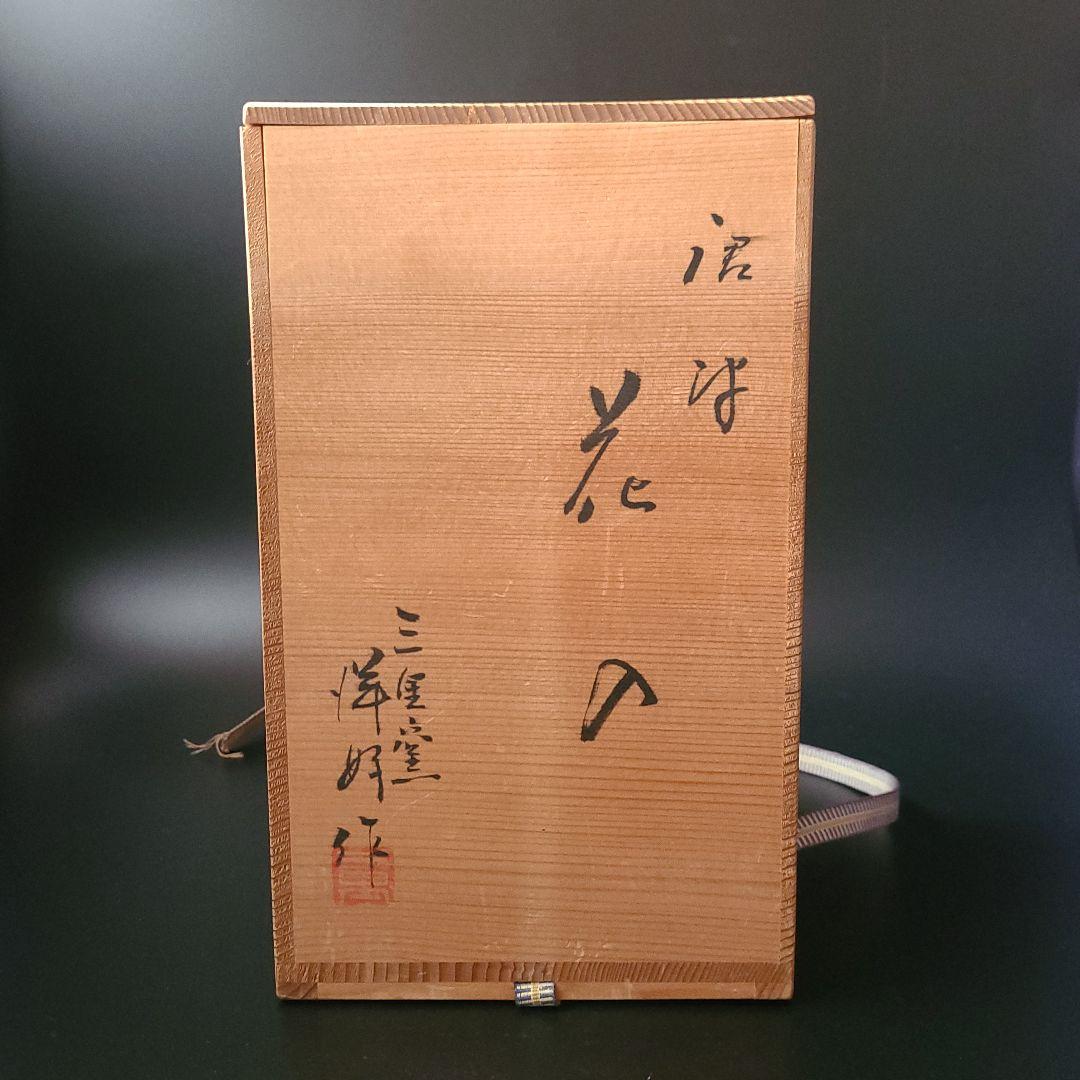 唐津
花入
三里窯
洋好作